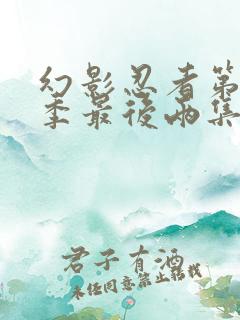 幻影忍者第
季最後两集
君子有酒
未经同意禁止转载